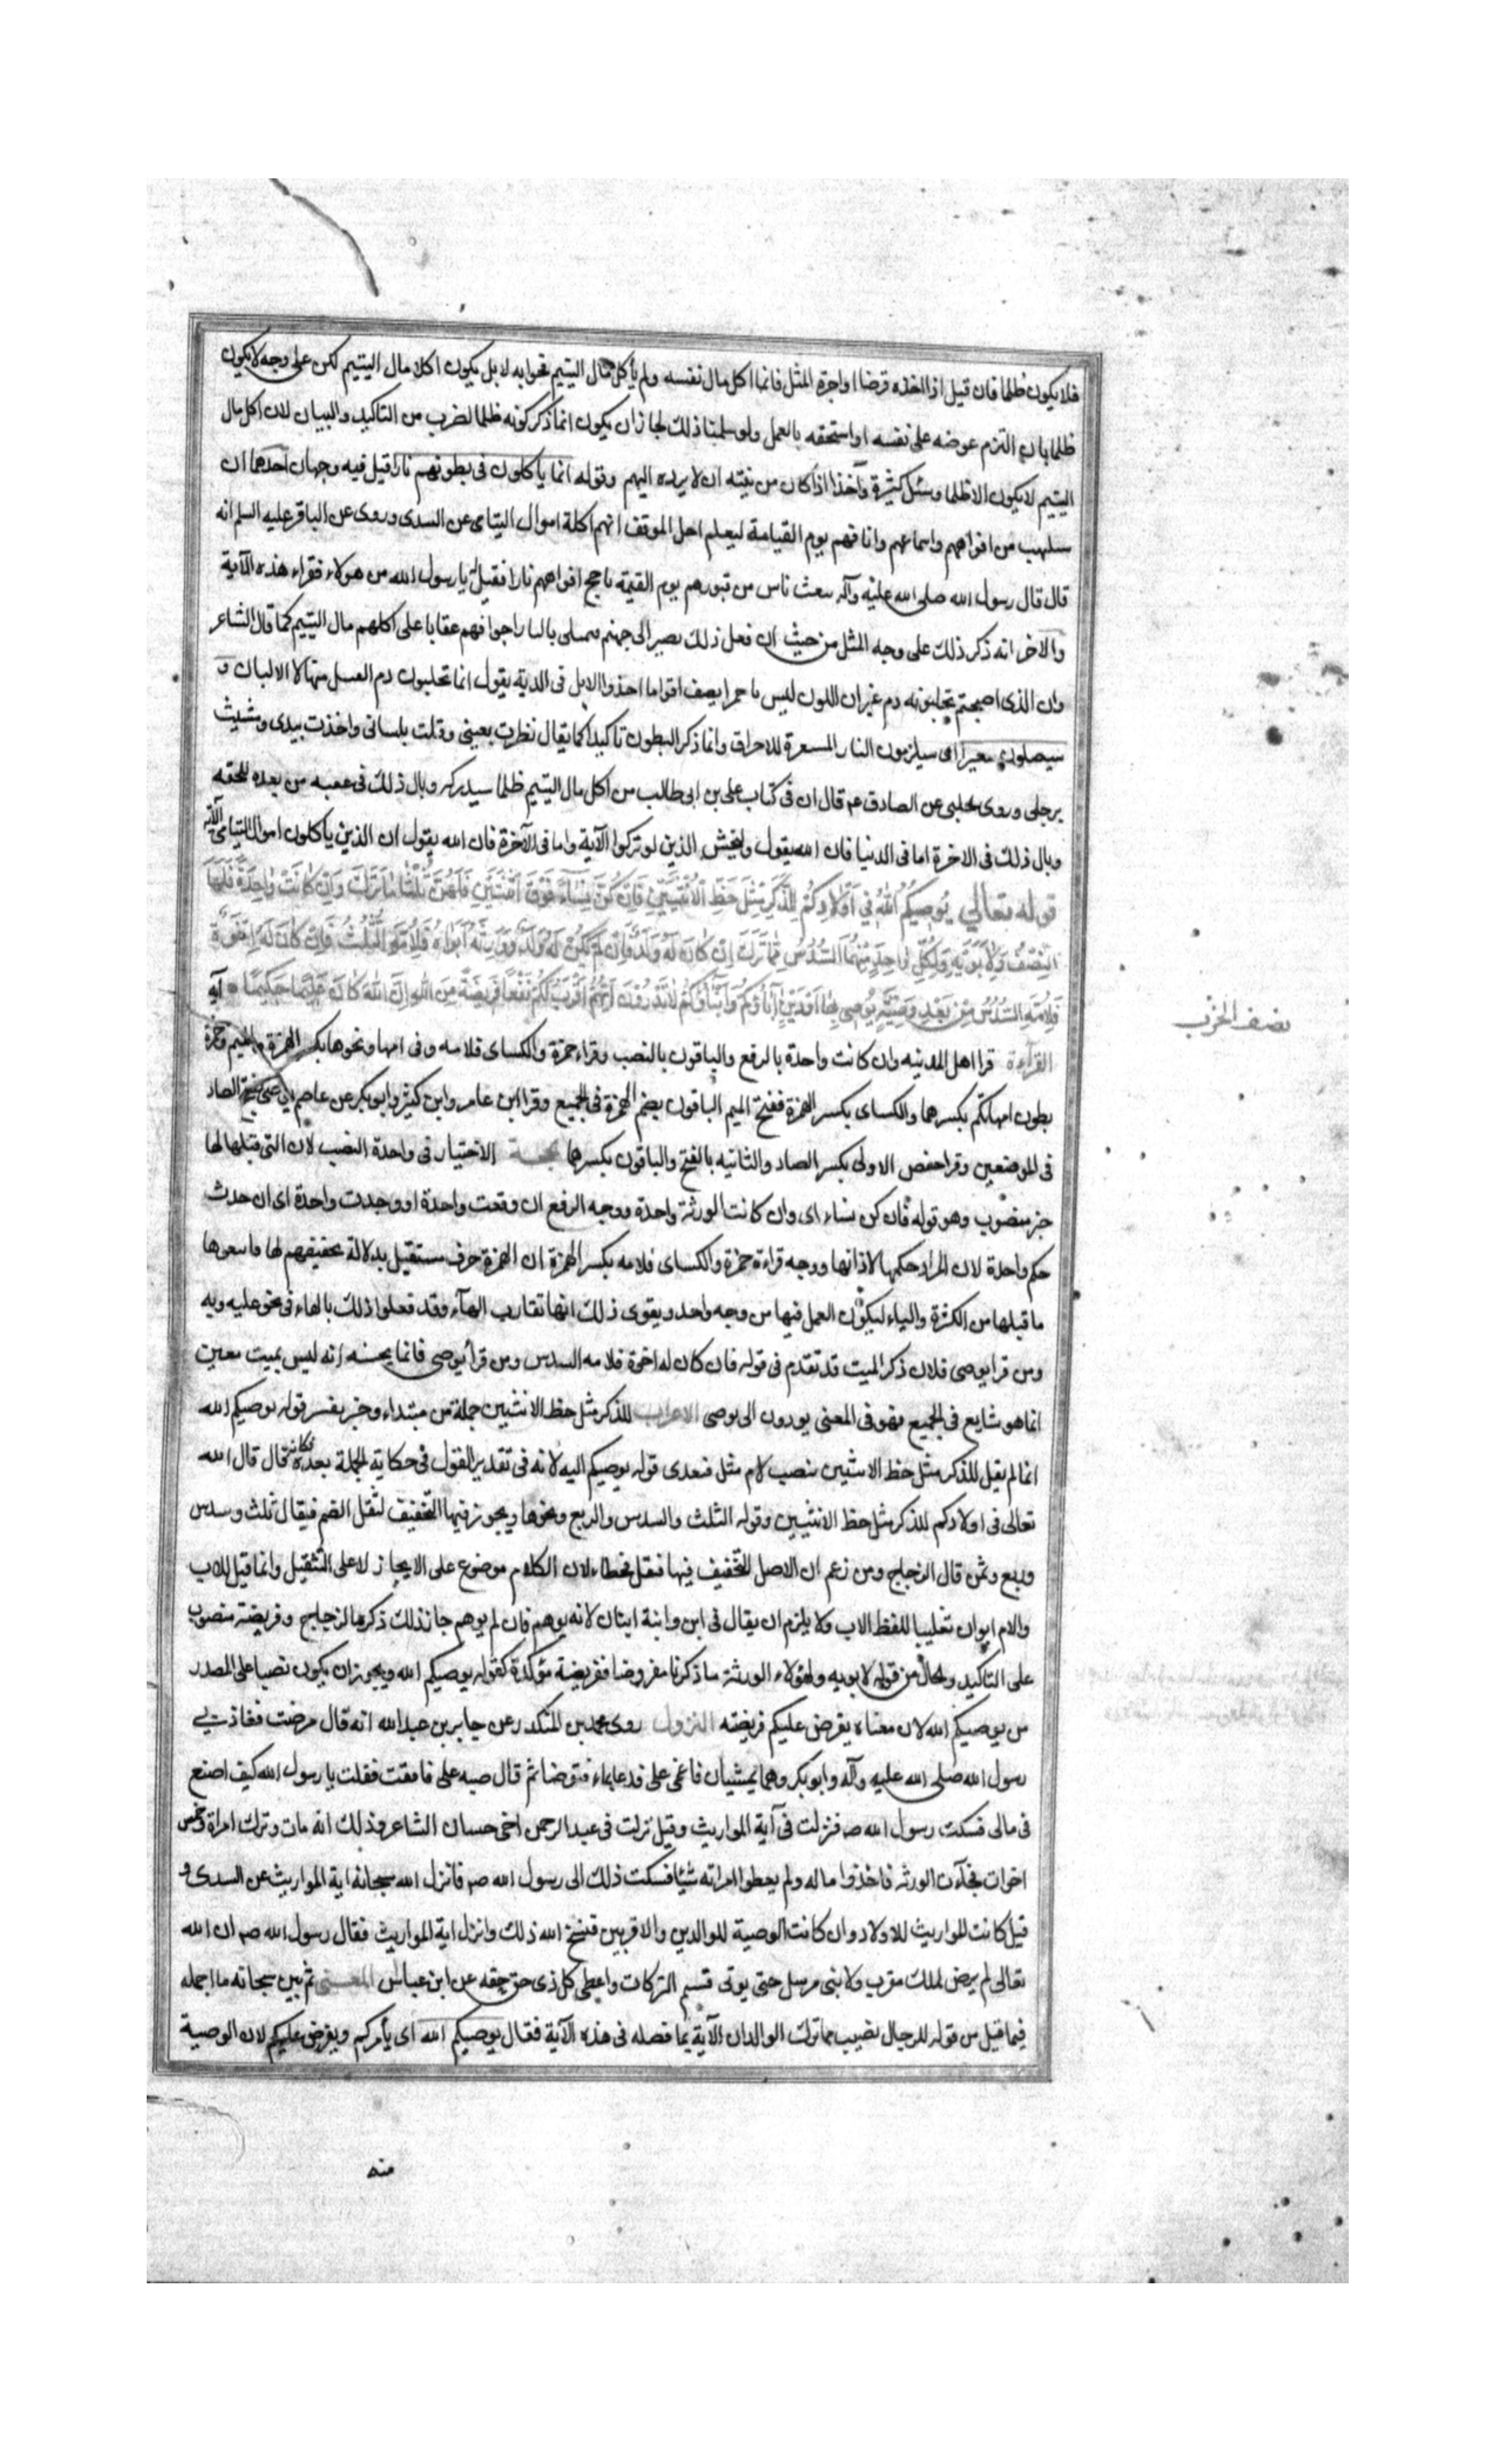 فلا يكون ظلما فان قيل اذا اخذه قرضا او اجرة المثل فانما اكل مال نفسه ولم يأكل مال اليتيم فجوابه لا بل يكون اكلا مال اليتيم لكن على وجه لا يكون
ظلما بان التزم عوضه على نفسه او استحقه بالعمل ولو سلمنا ذلك لجاز ان يكون انما ذكر كونه ظلما لضرب من التاكيد والبيان لان اكل مال
اليتيم لا يكون الا ظلما وسئل كثيرة وآخذا اذا كان من نيته ان لا يرده اليهم وقوله انما يأكلون فى بطونهم نارا قيل فيه وجهان احدهما ان
ستلهب من افواههم واسماعهم وانافهم يوم القيامة ليعلم اهل الموقف انهم اكلة اموال اليتامى عن السدى وروى عن الباقر عليه السلم انه
قال قال رسول الله صلى الله عليه وآله يبعث ناس من قبورهم يوم القيمة تاجج افواههم نارا فقيل يا رسول الله من هولاء فقراء هذه الآية
والآخر انه ذكر ذلك على وجه المثل من حيث ان فعل ذلك يصير الى جهنم بالنار اجوافهم عقابا على اكلهم مال اليتيم كما قال الشاعر
وان الذى اصبحتم تحلبونه دم غير ان اللون ليس باحمرا يصف اقواما اخذوا الابل فى الدية يقول انما تحلبون دم منها لا الالبان و
سيصلون سعيرا اى سيلزمون النار المسعرة للاحراق وانما ذكر البطون تاكيدا كما يقال نظرت بعينى وقلت بلسانى واخذت بيدى ومشيت
برجلى وروى الحلبى عن الصادق عم قال ان فى كتاب على بن ابى طالب من اكل مال اليتيم ظلما سيدركه وبال ذلك فى عقبه من بعده يلحقه
وبال ذلك فى الاخرة اما فى الدنيا فان الله يقول وليخش الذين لو تركوا الآية واما فى الآخرة فان الله يقول ان الذين يأكلون اموال اليتامى الآية
قوله تعالى يُوصِيكُمُ اللهُ فِي أَوْلَادِكُمْ لِلذَّكَرِ مِثْلُ حَظِّ الْأُنْثَيَيْنِ فَإِنْ كُنَّ نِسَاءً فَوْقَ اثْنَتَيْنِ فَلَهُنَّ ثُلُثَا مَا تَرَكَ وَإِنْ كَانَتْ وَاحِدَةً فَلَهَا
النِّصْفُ وَلِأَبَوَيْهِ لِكُلِّ وَاحِدٍ مِنْهُمَا السُّدُسُ مِمَّا تَرَكَ إِنْ كَانَ لَهُ وَلَدٌ فَإِنْ لَمْ يَكُنْ لَهُ وَلَدٌ وَوَرِثَهُ أَبَوَاهُ فَلِأُمِّهِ الثُّلُثُ فَإِنْ كَانَ لَهُ إِخْوَةٌ
فَلِأُمِّهِ السُّدُسُ مِنْ بَعْدِ وَصِيَّةٍ يُوصِي بِهَا أَوْ دَيْنٍ آبَاؤُكُمْ وَأَبْنَاؤُكُمْ لَا تَدْرُونَ أَيُّهُمْ أَقْرَبُ لَكُمْ نَفْعًا فَرِيضَةً مِنَ اللهِ إِنَّ اللهَ كَانَ عَلِيمًا حَكِيمًا آية
نصف الحزب
القراءة قرا اهل المدينه وان كانت واحدة بالرفع والباقون بالنصب وقراء حمزة والكساى فلامه وفى امها ونحوها بكسر الهمزة والميم وحمزة
بطون امهاتكم بكسرهما والكساى بكسر الهمزة ففتح الميم الباقون بضم الهمزة فى الجميع وقرا ابن عامر وابن كثير وابو بكر عن عاصم يوصى بفتح الصاد
فى الموضعين وقرا حفص الاولى بكسر الصاد والثانيه بالفتح والباقون بكسرها الحجة الاختيار فى واحدة النصب لان التى قبلها لها
خبر منصوب وهو قوله فان كن نساء اى وان كانت الورثة واحدة ووجه الرفع ان وقعت واحدة او وجدت واحدة اى ان حدث
حكم واحدة لان المراد حكمها لا ذاتها ووجه قراءة حمزة والكساى فلامه بكسر الهمزة ان الهمزة حرف مستقيل بدلالة تخفيفهم لها فاتبعوها
ما قبلها من الكسرة والياء ليكون العمل فيها من وجه واحد ويقوى ذلك انها تقارب الهآء وقد فعلوا ذلك بالهاء فى نحو عليه وبه
ومن قرا يوصى فلان ذكر الميت قد تقدم فى قوله فان كان له اخوة فلامه السدس ومن قرأ يوصى فانما يحسنه انه ليس بميت معين
انما هو شايع فى الجميع فهو فى المعنى يورون الى يوصى الاعراب للذكر مثل حظ الانثيين جملة من مبتداء وخبر يفسر قوله يوصيكم الله
انما لم يقل للذكر مثل حظ الانثيين بنصب لام مثل فتعدى قوله يوصيكم اليه لانه فى تقدير القول فى حكاية الجملة بعده فكانه قال قال الله
تعالى فى اولادكم للذكر مثل حظ الانثيين وقوله الثلث والسدس والربع ونحوها ويجوز فيها التخفيف لثقل الضم فيقال ثلث وسدس
وربع وثمن قال الزجاج ومن زعم ان الاصل التخفيف فيها فثقل فخطاء لان الكلام موضوع على الايجاز لا على التثقيل وانما قيل للاب
والام ابوان تغليبا للفظ الاب ولا يلزم ان يقال فى ابن وابنة ابنان لانه يوهم فان لم يوهم جاز ذلك ذكره الزجاج وفريضة منصوب
على التاكيد والحال من قوله لابويه ولهؤلاء الورثة ما ذكرنا مفروضا ففريضة مؤكدة كقوله يوصيكم الله ويجوز ان يكون نصبا على المصدر
من يوصيكم الله لان معناه يفرض عليكم فريضته النزول روى محمد بن المنكدر عن جابر بن عبدالله انه قال مرضت فعادنى
رسول الله صلى الله عليه وآله وابو بكر وهما يمشيان فاغمى على فدعا بماء فتوضا ثم قال صبه على فافقت فقلت يا رسول الله كيف اصنع
فى مالى فسكت رسول الله ص فنزلت فى آية المواريث وقيل نزلت فى عبد الرحمن اخى حسان الشاعر وذلك انه مات وترك امراة وخمس
اخوات فجآءت الورثه فاخذوا ماله ولم يعطوا امراته شيئا فشكت ذلك الى رسول الله صم فانزل الله سبحانه اية المواريث عن السدى و
قيل كانت المواريث للاولاد وان كانت الوصية للوالدين والاقربين فنسخ الله ذلك وانزل اية المواريث فقال رسول الله صم ان الله
تعالى لم يرض لملك مقرب ولا نبى مرسل حتى يوتى قسم التركات واعطى كل ذى حق حقه عن ابن عباس المعنى ثم بين سبحانه ما اجمله
فيما قبل من قوله للرجال نصيب مما ترك الوالدان الآية بما فصله فى هذه الآية فقال يوصيكم الله اى يأمركم ويفرض عليكم لان الوصية
منه